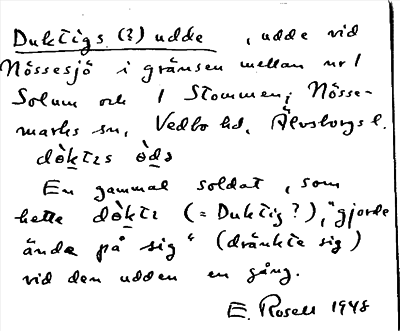 Duktigs (?) udde, udde vid
Nössesjö i gränsen mellan nr 1
Solum och 1 Stommen; Nösse-
marks sn, Vedbo hd, Älvsborgs l.
dòktɪs òdə
En gammal soldat, som
hette dòktɪ (= Duktig?), "gjorde
ände på sig" (dränkte sig)
vid den udden en gång.
E. Rosell 1948